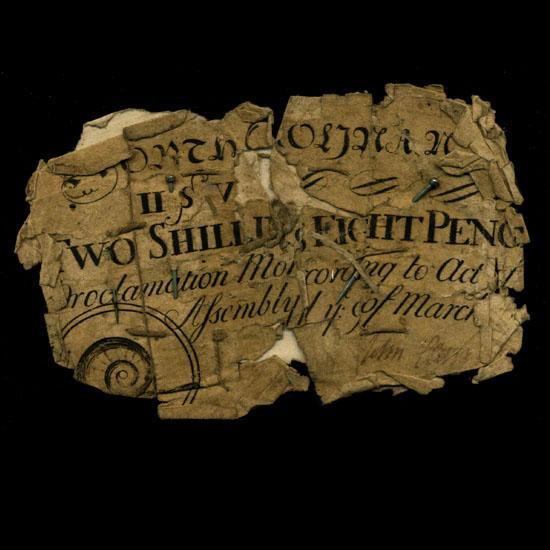 ORTH CROLINA N
IIS V
TWO SHILLIN & EIGHT PENC
Proclamation Mon cording to Act of
Assembly d ye 9 of March
John